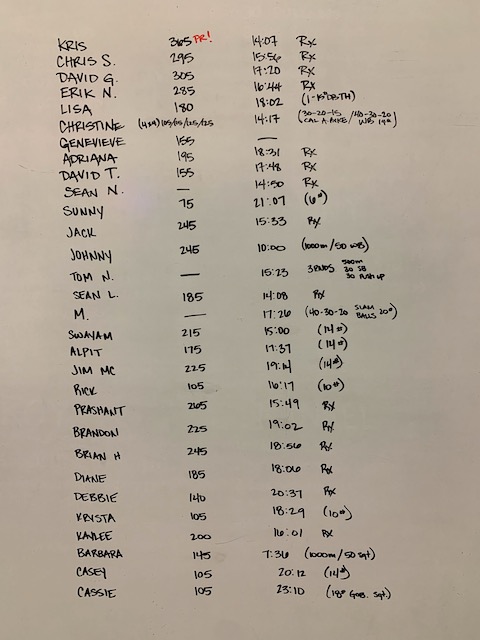 KRIS 365 PR! 14:07 Rx
CHRIS S. 295 15:56 Rx
DAVID G. 305 17:20 Rx
ERIK N. 285 16:44 Rx
LISA 180 18:02
CHRISTINE 14:17 (30-20-15 CAL A. BIKE / 40-30-20 WB 14#)
GENEVIEVE 155 —
ADRIANA 195 18:31 Rx
DAVID T. 155 17:48 Rx
SEAN N. — 14:50 Rx
SUNNY 75 21:07 (6#)
JACK 245 15:33 Rx
JOHNNY 245 10:00 (1000m/50 WB)
TOM N. — 15:23 3 RNDS 500m 30 SB 30 PUSH UP
SEAN L. 185 14:08 Rx
M. — 17:26 (40-30-20 SLAM BALLS 20#)
SWAYAM 215 15:00 (14#)
ALPIT 175 17:37 (14#)
JIM MC 225 19:14 (14#)
RICK 105 16:17 (10#)
PRASHANT 265 15:49 Rx
BRANDON 225 19:02 Rx
BRIAN H 245 18:56 Rx
DIANE 185 18:06 Rx
DEBBIE 140 20:37 Rx
KRYSTA 105 18:29 (10#)
KAYLEE 200 16:01 Rx
BARBARA 145 7:36 (1000m/50 sqt)
CASEY 105 20:12 (14#)
CASSIE 105 23:10 (18# Gob. Sqt.)